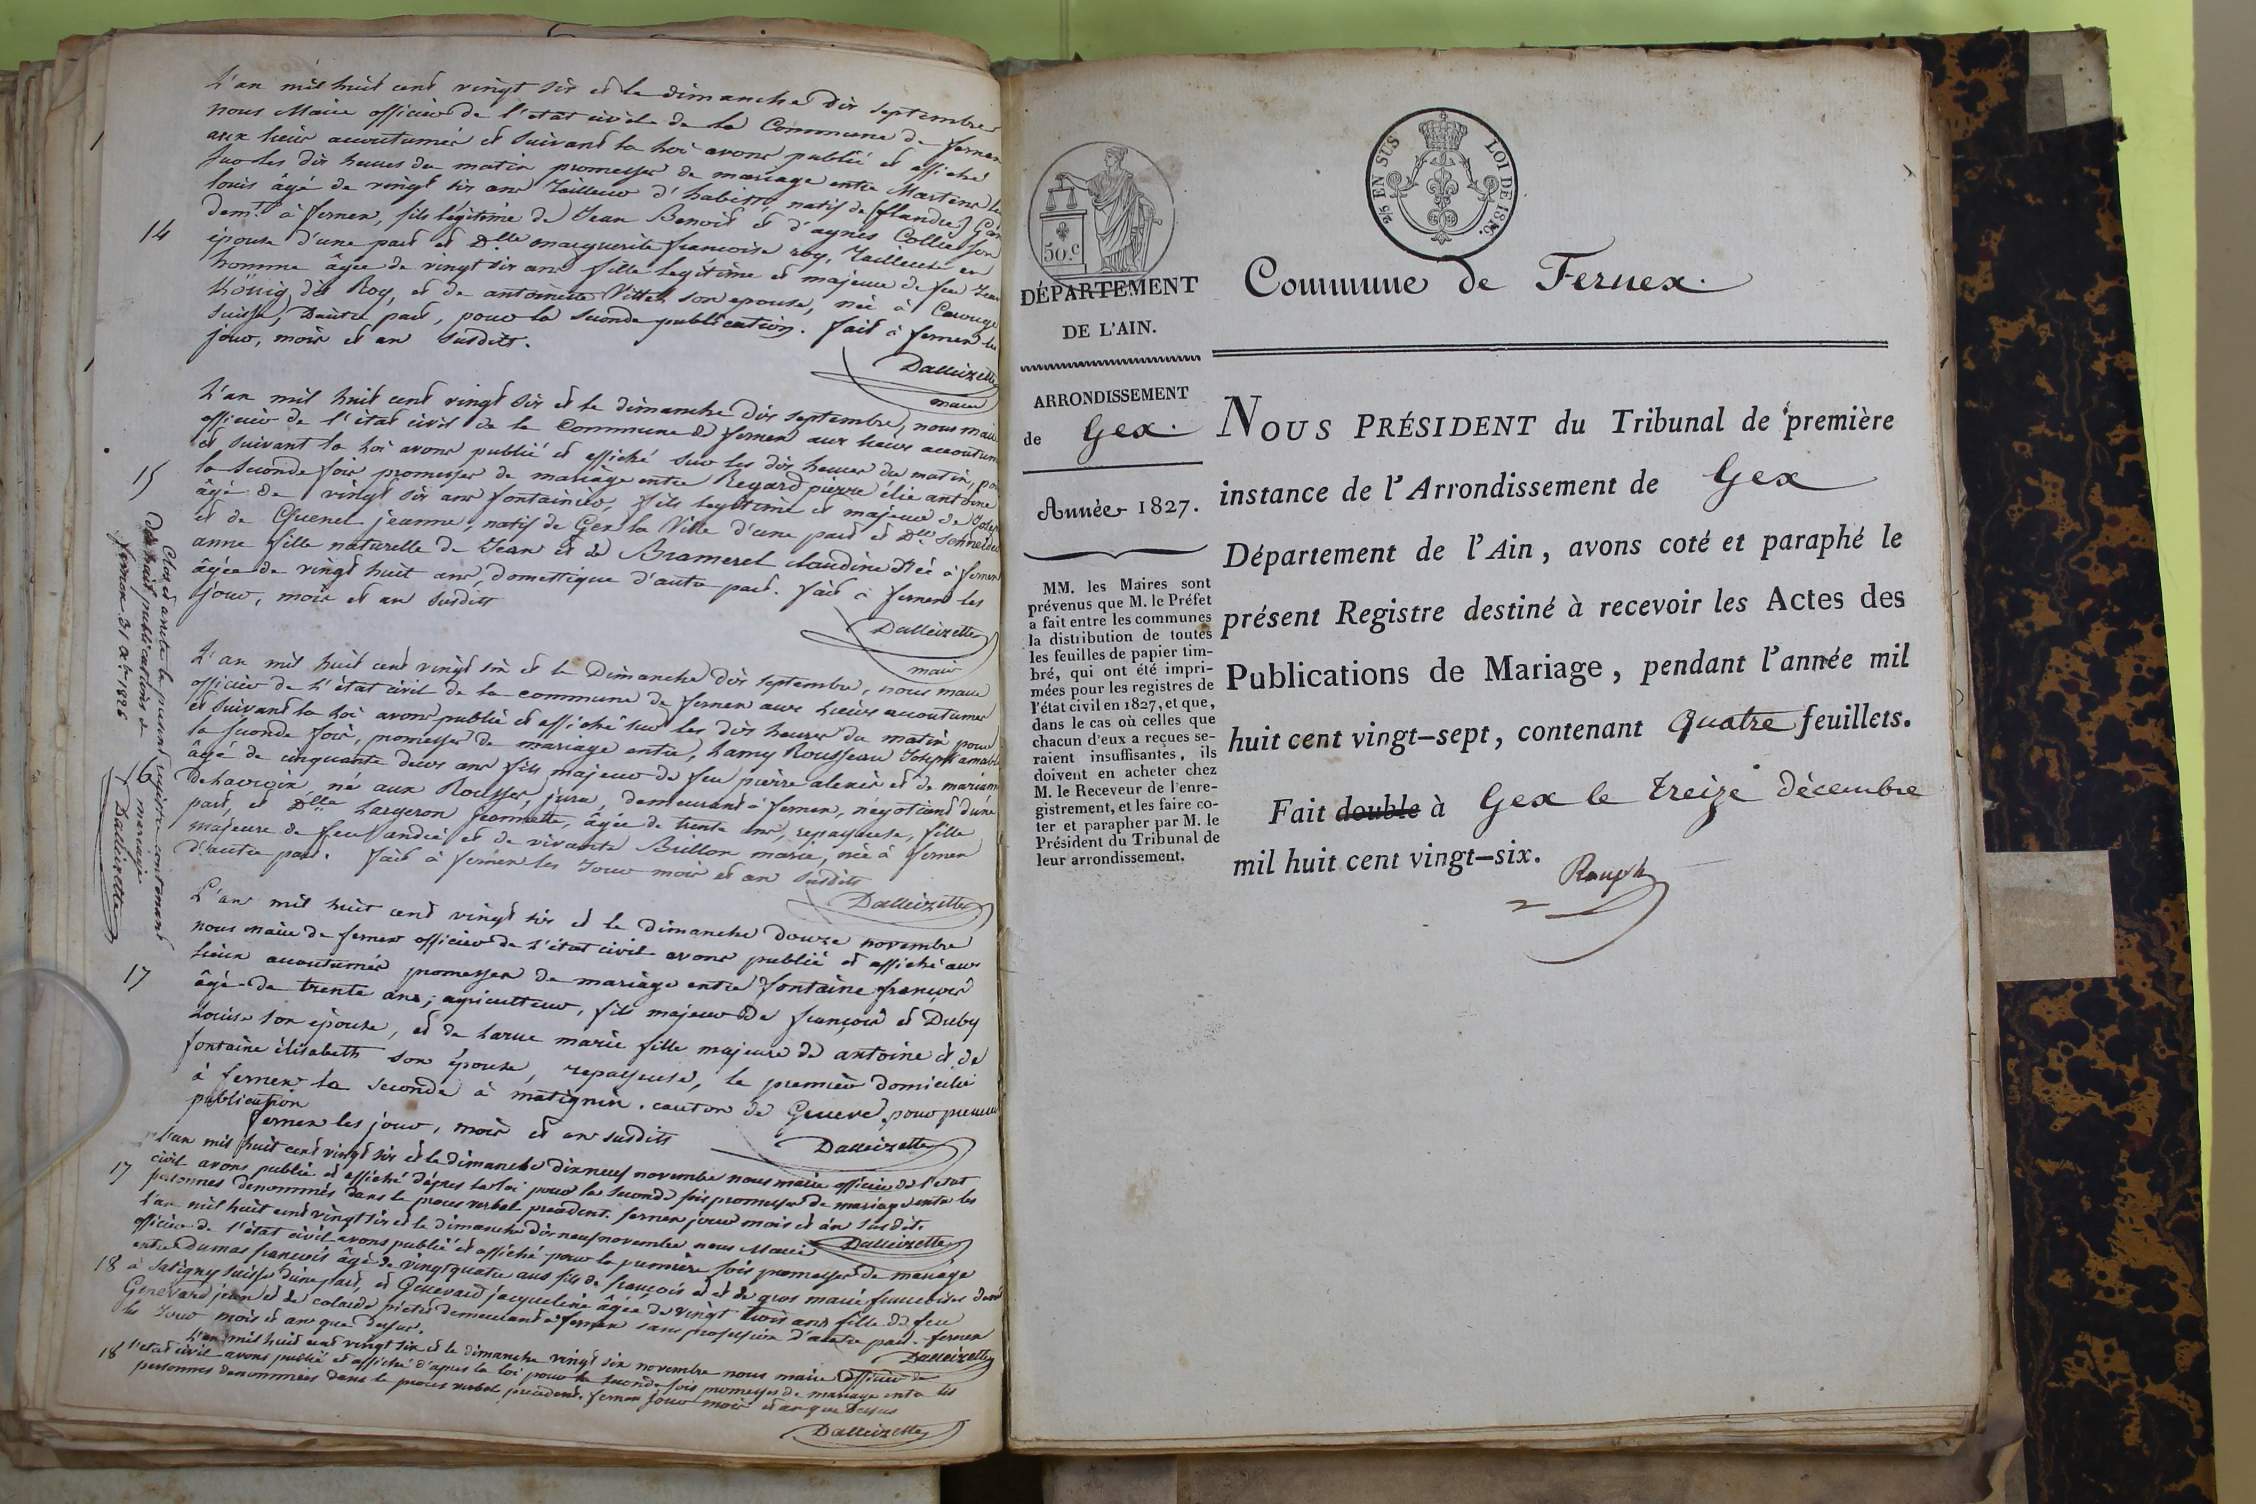 L'an mil huit cent vingt six et le dimanche dix septembre
nous Maire officier de l'etat civil de la Commune de fernex
aux lieux accoutumés et suivant la loi avons publié et affiché
sur les dix heures du matin promesses de mariage entre Martens
louis âgé de vingt six ans tailleur d'habits, natif de (flandre)
demt. à fernex, fils légitime de Jean Benoit et d'agnès Collier son
épouse d'une part et Dlle marguerite francoise roy, Tailleuse en
homme âgée de vingt six ans fille legitime et majeure de feu
dit Roy, et de antoinette Vittet son epouse, née à Carouge
suisse, Dautre part, pour la seconde publication. fait à fernex les
jour, mois et an susdits.
14
Dalleizette
maire
L'an mil huit cent vingt six et le dimanche dix septembre, nous maire
officier de l'état civil de la Commune de fernex aux lieux accoutumés
et suivant la loi avons publié et affiché sur les dix heures du matin, pour
la seconde fois promesses de mariage entre Regard pierre élie antoine
âgé de vingt six ans fontainier, fils legitime et majeur de
et de Quenet jeanne, natif de Gex la Ville d'une part et Dlle
anne fille naturelle de Jean et de Brameret claudine née à fernex
âgée de vingt huit ans, domestique d'autre part. fait à fernex les
jour, mois et an susdits
15
Dalleizette
maire
L'an mil huit cent vingt six et le Dimanche dix septembre, nous maire
officier de l'état civil de la commune de fernex aux lieux accoutumés
et suivant la loi avons publié et affiché sur les dix heures du matin pour
la seconde fois, promesses de mariage entre, Lamy Rousseau Joseph
âgé de cinquante deux ans fils majeur de feu pierre alexis et de
né aux Rousses, jura, demeurant à fernex, négotiant d'une
part, et Dlle Largeron jeannette, âgée de trente ans, repasseuse, fille
majeure de feu andré et de vivante Brillon marie, née à fernex
d'autre part. fait à fernex les Jour mois et an susdits
16
Dalleizette
Clos et arreté le présent registre contenant
dix huit publications de mariage
fernex 31 Xbre 1826
Dalleizette
L'an mil huit cent vingt six et le dimanche douze novembre
nous maire de fernex officier de l'état civil avons publié et affiché aux
lieux accoutumés promesses de mariage entre fontaine françois
âgé de trente ans, agriculteur, fils majeur de françois et Duby
Louise son épouse, et de Larue marie fille majeure de antoine et de
fontaine élisabeth son épouse, repasseuse, le premier domicilié
à fernex la seconde à matignin. canton de Geneve, pour premiere
publication
fernex les jour, mois et an susdits
17
Dalleizette
L'an mil huit cent vingt six et le dimanche dix neuf novembre nous maire officier de l'etat
civil avons publié et affiché d'après la loi pour la seconde fois promesses de mariage entre les
personnes denommés dans le proces verbal précédent. fernex jour mois et an susdit.
17
Dalleizette
L'an mil huit cent vingt six et le dimanche dix neuf novembre nous Maire
officier de l'état civil avons publié et affiché pour la premiere fois promesses de mariage
entre Dumas françois âgé de vingt quatre ans fils de françois et de gros marie francoise
à Satigny suisse d'une part, et Genevard jacqueline âgée de vingt trois ans fille de feu
Genevard jean et de demeurant à fernex sans profession d'autre part. fernex
les Jour mois et an que dessus.
18
Dalleizette
L'an mil huit cent vingt six et le dimanche vingt six novembre nous maire officier de
l'etat civil avons publié et affiché d'apres la loi pour la seconde fois promesses de mariage entre les
personnes denommées dans le proces verbal precedent. fernex jour mois et an que dessus
18
Dalleizette
50.c
2/5 EN SUS LOI DE 1816.
DÉPARTEMENT
DE L'AIN.
ARRONDISSEMENT
de Gex.
Année 1827.
MM. les Maires sont
prévenus que M. le Préfet
a fait entre les communes
la distribution de toutes
les feuilles de papier tim-
bré, qui ont été impri-
mées pour les registres de
l'état civil en 1827, et que,
dans le cas où celles que
chacun d'eux a reçues se-
raient insuffisantes, ils
doivent en acheter chez
M. le Receveur de l'enre-
gistrement, et les faire co-
ter et parapher par M. le
Président du Tribunal de
leur arrondissement.
Commune de Fernex.
NOUS PRÉSIDENT du Tribunal de première
instance de l'Arrondissement de Gex
Département de l'Ain, avons coté et paraphé le
présent Registre destiné à recevoir les Actes des
Publications de Mariage, pendant l'année mil
huit cent vingt-sept, contenant quatre feuillets.
Fait double à Gex le treize décembre
mil huit cent vingt-six.